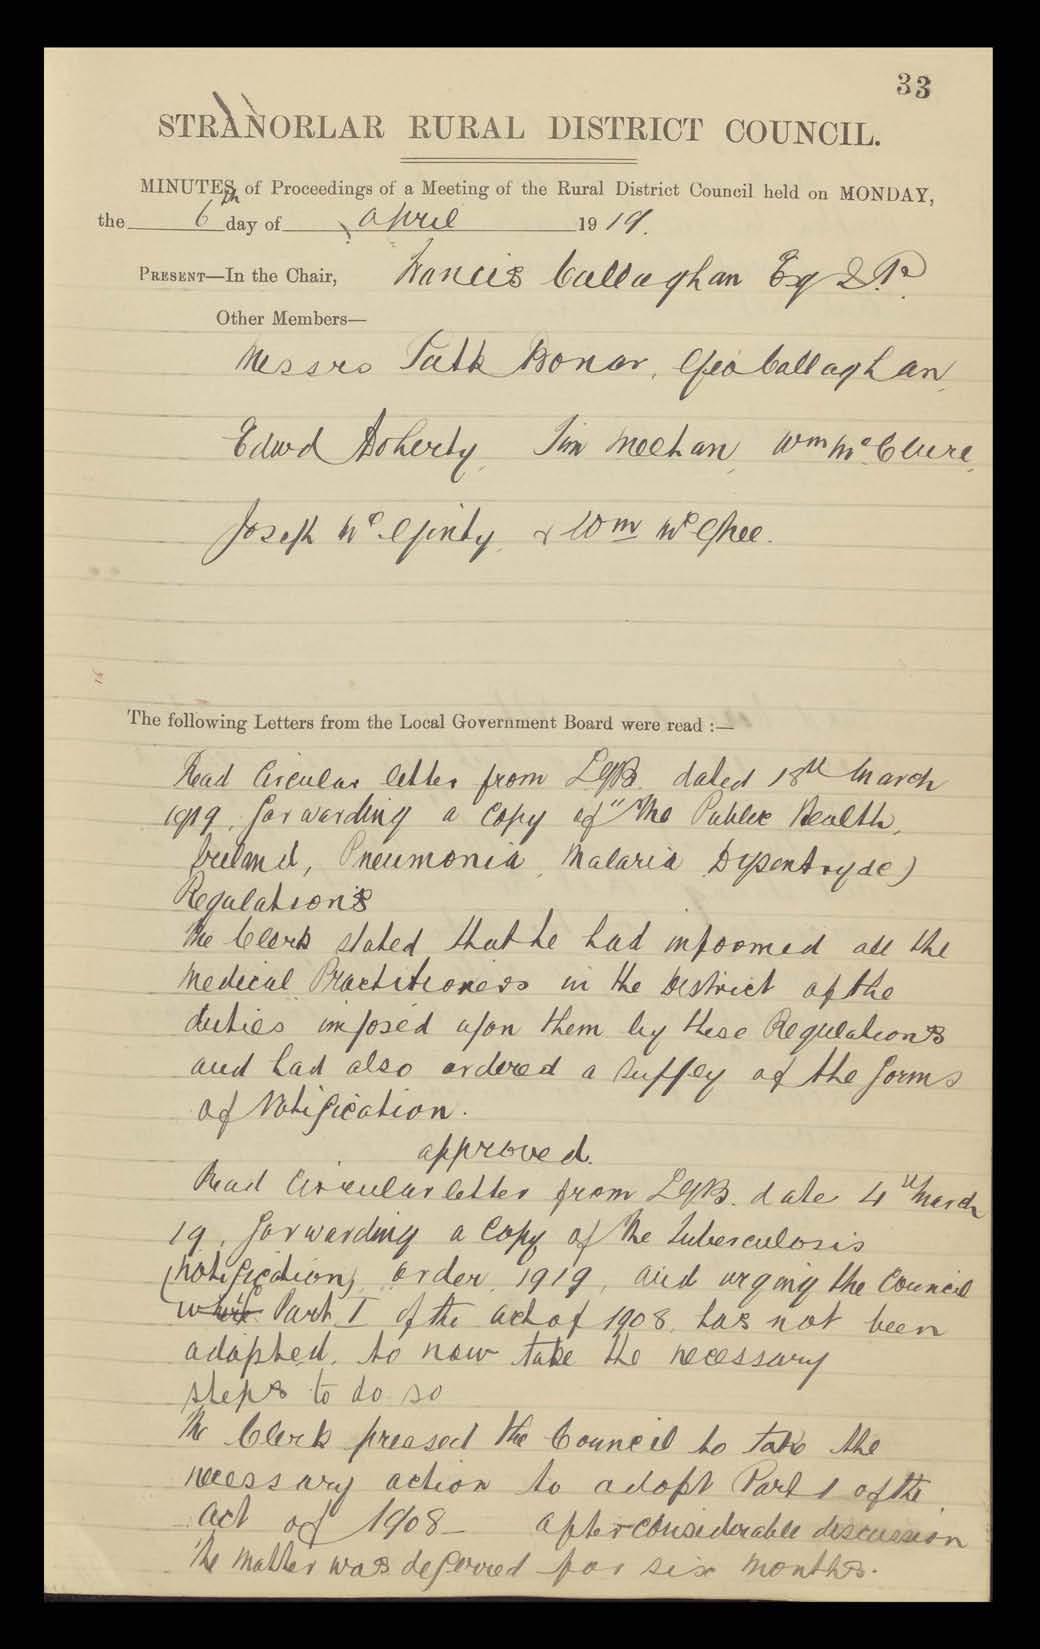 33
STRANORLAR RURAL DISTRICT COUNCIL.
MINUTES of Proceedings of a Meeting of the Rural District Council held on MONDAY,
the 6th day of April 1919.
PRESENT—In the Chair, Francis Callaghan Esq J.P.
Other Members—
Messrs Patk Bonar, Geo Callaghan,
Edwd Doherty, Jim Meehan, Wm McClure,
Joseph McGinty, & Wm McGhee.
The following Letters from the Local Government Board were read :—
Read Circular letter from LGB. dated 18th March
1919, forwarding a copy of "The Public Health,
Ireland, Pneumonia, Malaria Dysentry &c)
Regulations
The Clerk stated that he had informed all the
Medical Practitioners in the District of the
duties imposed upon them by these Regulations
and had also ordered a supply of the forms
of Notification.
approved.
Read Circular letter from LGB. date 4th March
19, forwarding a copy of the Tuberculosis
(Notification) order, 1919, and urging the Council
Part I of the act of 1908, has not been
adopted, to now take the necessary
steps to do so
The Clerk pressed the Council to take the
necessary action to adopt Part 1 of the
act of 1908— after considerable discussion
the matter was deferred for six months.